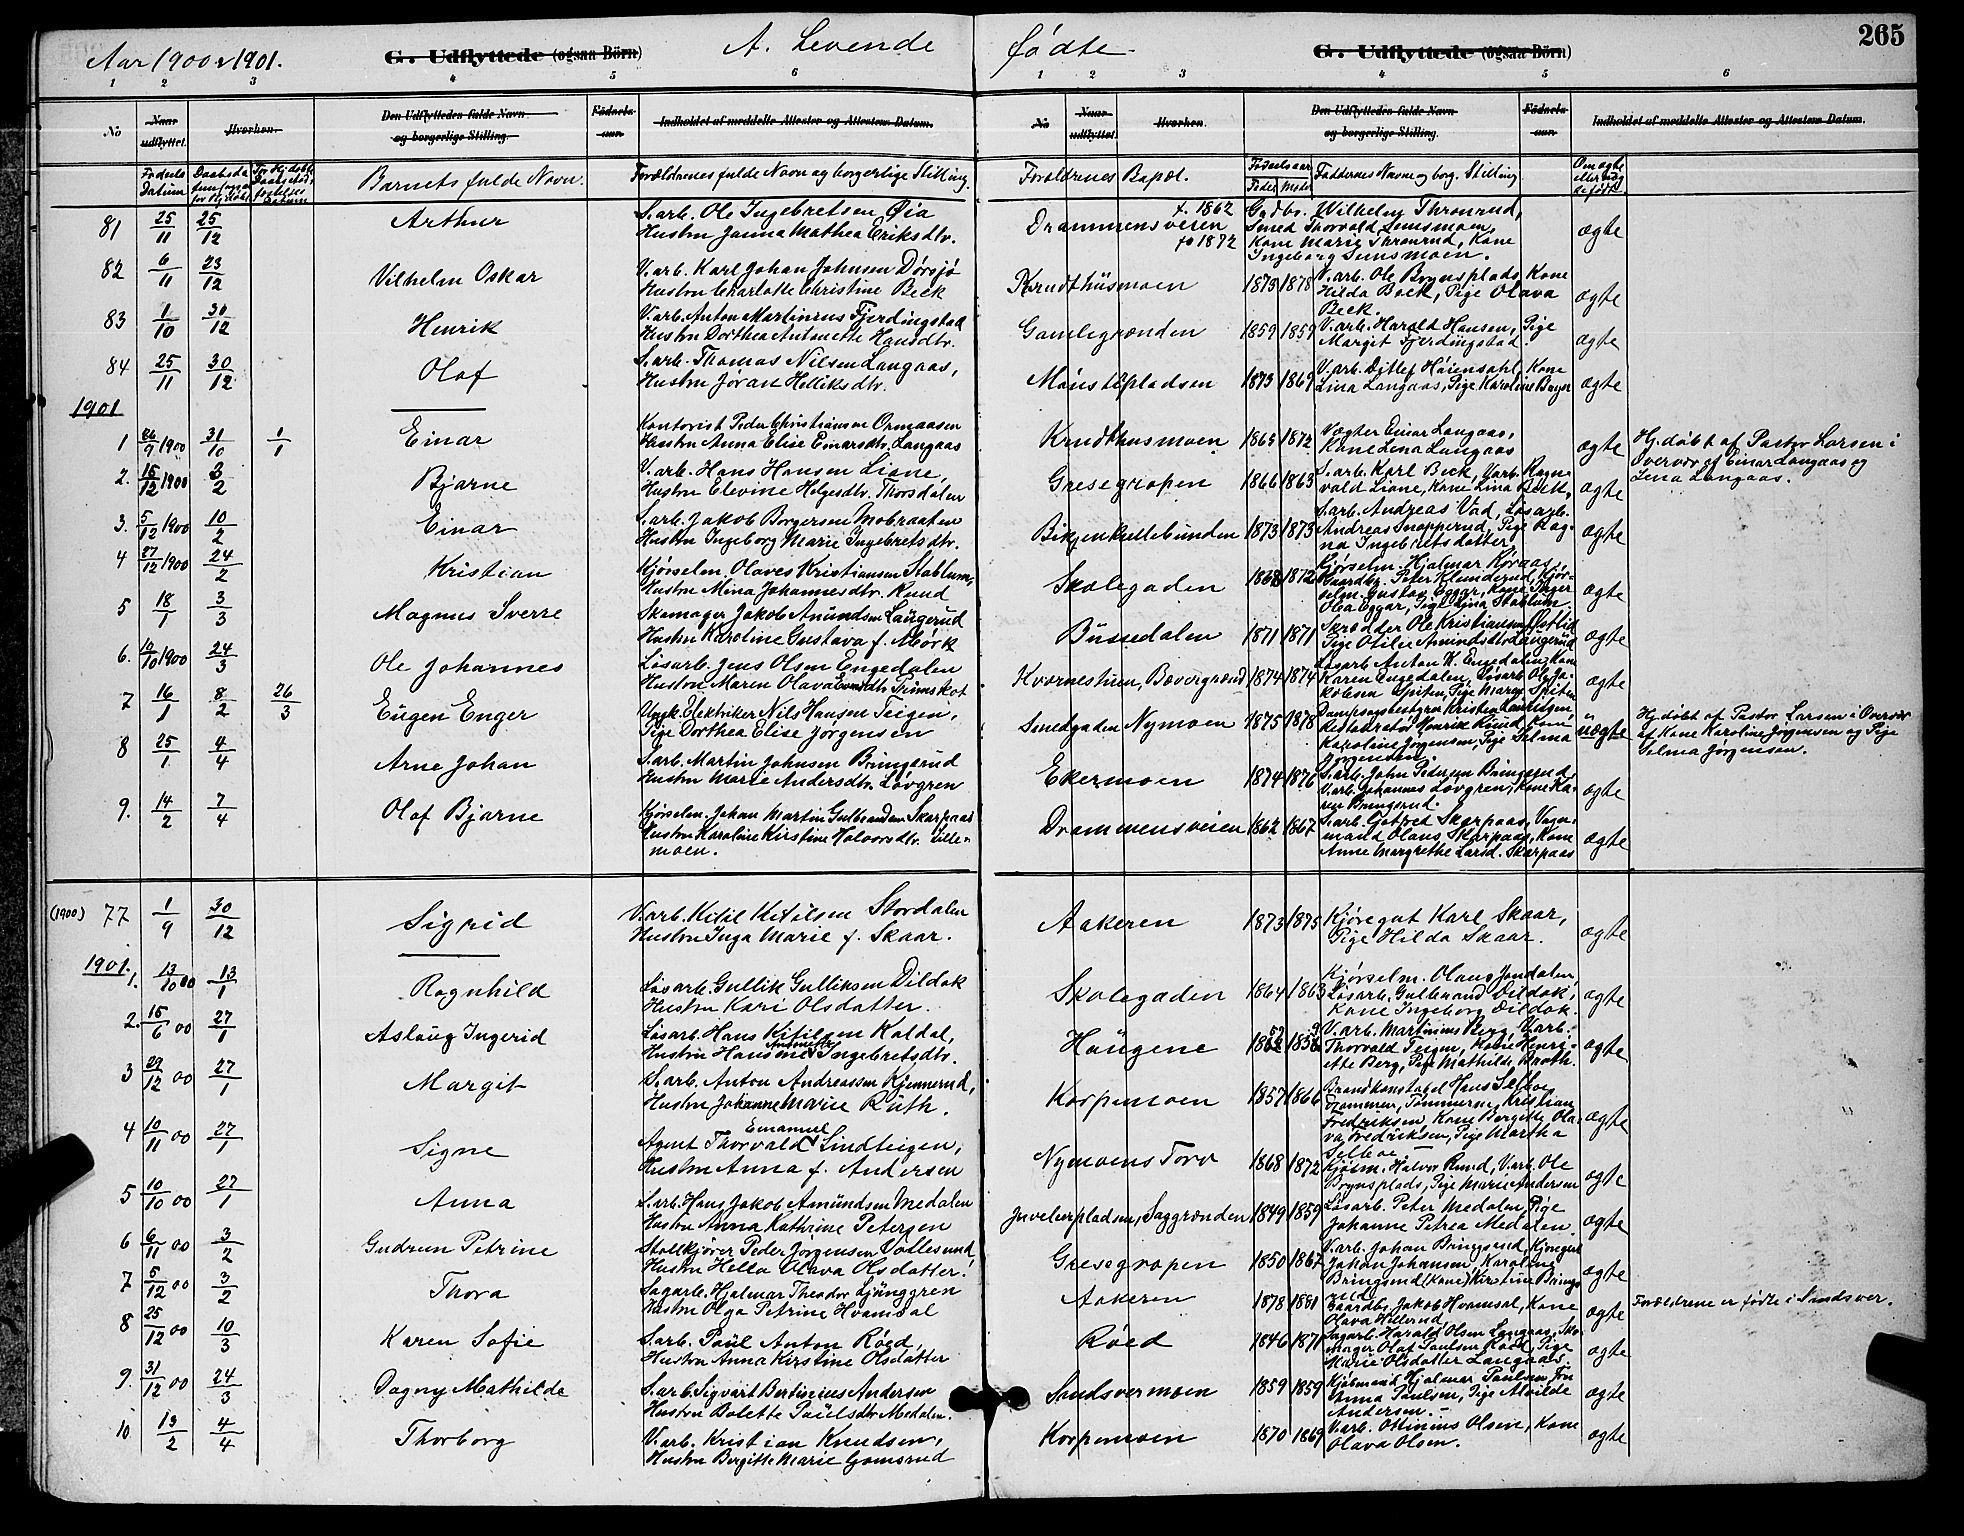 Aar 1900 & 1901. G. Udflyttede (ogsaa Börn) A. Levende fødte. G. Udflyttede (ogsaa Börn) 265
1 2 3 4 5 6 1 2 3 4 5 6
No Naar udflyttet. Hvorhen. Den Udflyttedes fulde Navn og borgerlige Stilling. Födsels-aar. Indholdet af meddelte Attester og Attestens Datum. No Naar udflyttet. Hvorhen. Den Udflyttedes fulde Navn og borgerlige Stilling. Födsels-aar. Indholdet af meddelte Attester og Attestens Datum.
Fødsels Datum Barnets fulde Navn. Forældrenes fulde Navn og borgerlige Stilling. Forældrenes Bopæl. Fødselsaar Fader Moder Faddernes Navne og borg. Stilling Om ægte eller uægte født.
81 25/11 25/12 Arthur S.arb. Ole Ingebretsen Øia Drammensveien f. 1862 Gadbr. Wilhelm Thronrud, ægte
Hustru Janna Mathea Eriksdtr. fo 1872 Smed Thorvald Semsmoen,
Kone Marie Thronrud, Kone
Ingeborg Semsmoen.
82 6/11 23/12 Vilhelm Oskar V.arb. Karl Johan Johnsen Dørsjø Krudthusmoen 1873 1878 V.arb. Ole Brynsplads, Kone ægte
Hustru Charlotte Christine Beck Hilda Beck, Pige Olava
Beck.
83 1/10 31/12 Henrik V.arb. Anton Martinius Fjerdingstad Gamlegrænden 1859 1859 V.arb. Harald Hansen, Pige ægte
Hustru Dorthea Antonette Hansdtr. Margit Fjerdingstad.
84 25/11 30/12 Olaf S.arb. Thomas Nilsen Langaas, 1873 1869 V.arb. Ditlef Høiensahl, Kone ægte
Hustru Jøran Helliksdtr. Lina Langaas, Pige Karoline Bager
1901
1 26/9 1900 31/10 1/1 Einar Kontorist Peder Christiansen Ormaasen Krudthusmoen 1865 1872 Vægter Einar Langaas, ægte Hj.døbt af Pastor Larsen i
Hustru Anna Elise Einarsdtr. Langaas Kone Lena Langaas Overvær af Einar Langaas og
Lena Langaas.
2. 15/12 1900 3/2 Bjarne V.arb. Hans Hansen Liane, Gresegropen 1866 1863 S.arb. Karl Beck, V.arb. Ragn- ægte
Hustru Elevine Helgesdtr. Thorsdalen vald Liane, Kone Lina Beck,
3. 5/12 1900 10/2 Einar S.arb. Jakob Borgersen Mobraaten 1873 1873 S.arb. Andreas Vad, Løsarb. ægte
Hustru Ingeborg Marie Ingebretsdtr. Andreas Snopperud, Pige Rag-
na Ingebretsdatter
4 27/12 1900 24/2 Kristian Kjørselm. Olaves Kristiansen Stablum, Skolegaden 1868 1872 Kjørselm. Hjalmar Køraas, ægte
Hustru Mina Johannesdtr. Rund Gaardbr. Peter Klunderud, Kjør-
selm. Gustav Eggar, Kone Inger
Olea Eggar, Pige Lina Stablum.
5 18/1 3/3 Magnus Sverre Skomager Jakob Amundsen Laugerud Bussedalen 1871 1871 Skrædder Ole Kristiansen Fostlid ægte
Hustru Karoline Gustava f. Mørk Pige Otilie Amundsdtr. Laugerud
6. 10/10 1900 24/3 Ole Johannes Løsarb. Jens Olsen Engedalen Kvernestuen, Bævergrænd 1874 1874 Løsarb Anton K. Engedalen, Kone ægte
Hustru Maren Olava Evensdtr. Trimskot Karen Engedalen, Løsarb. Ole Ja-
kobsen Spiten, Pige Maren Spiten
7 16/1 8/2 26/3 Eugen Enger Ungk. Elektriker Nils Hansen Teigen, Smedgaden Nymoen 1875 1878 Dampsagsbestyrer Kristen Lauritzen uægte Hj.døbt af Pastor Larsen i Overvær
Pige Dorthea Elise Jørgensen Restauratør Henrik Rund, Kone af Kone Karoline Jørgensen og Pige
Karoline Jørgensen, Pige Selma Selma Jørgensen.
Jørgensen.
8 25/1 4/4 Arne Johan S.arb. Martin Johnsen Bringsrud Ekermoen 1874 1876 S.arb. John Pedersen Bringsrud, ægte
Hustru Marie Andersdtr. Løvgren V.arb. Johannes Løvgren, Kone Ka-
ren Bringsrud.
9. 14/2 7/4 Olaf Bjarne Kjørselm. Johan Martin Gulbrandsen Skarpaas Drammensveien 1862 1867 S.arb. Gotfred Skarpaas, Vogn- ægte
Hustru Karoline Kirstine Halvorsdtr. Lille- mand Olaus Skarpaas, Kone
moen. Anne Margrethe Larsd. Skarpaas
(1900) 77 1/9 30/12 Sigrid V.arb. Kitil Kitilsen Stordalen Aakeren 1873 1875 Kjøregut Karl Skaar, ægte
Hustru Inga Marie f. Skaar. Pige Hilda Skaar.
1901.
1. 13/10 00 13/1 Ragnhild Løsarb. Gullik Gulliksen Dildok Skolegaden 1864 1863 Kjørselm. Olaus Jondalen, ægte
Hustru Kari Olsdatter. Løsarb. Gulbrand Dildok,
Kone Ingeborg Dildok.
2. 15/6 00 27/1 Aslaug Ingerid Løsarb. Hans Kitilsen Kaldal, Haugene V.arb. Martinius Berg, V.arb. ægte
Hustru Hansine Antonette Ingebretsdtr. Thorvald Teigen, Kone Henri-
ette Berg, Pige Mathilde Braath.
3 29/12 00 27/1 Margit S.arb. Anton Andreassen Kjennerud, Korpemoen 1857 1866 Brandkonstabel Hans Selboe ægte
Hustru Johanne Marie Ruth. Drammen, Tømmerm. Kristian
Fredriksen, Kone Bergitte Ola-
va Fredriksen, Pige Martha
Selboe —
4 10/11 00 27/1 Signe Agent Thorvald Emanuel Lindteigen, Nymoens Torv 1868 1872 Kjøbm. Halvor Rund, V.arb. Ole ægte
Hustru Anna f. Andersen Brynsplads, Pige Marie Andersen
5 10/10 00 27/1 Anna S.arb. Hans Jakob Amundsen Medalen Juvelerpladsen, Saggrænden 1849 1859 Løsarb. Peter Medalen, Pige ægte
Hustru Anna Kathrine Petersen Johanne Petrea Medalen.
6 6/11 00 3/2 Gudrun Petrine Staldkjører Peder Jørgensen Vollesund, Gresegropen 1850 1867 V.arb. Johan Bringsrud, Kjøregut ægte
Hustru Helle Olava Olsdatter. Johan Johansen, Karoline
Bringsrud (Kone), Kirstine Brings-
rud
7 5/12 00 3/2 Thora Sagarb. Hjalmar Theodor Ljunggren Aakeren 1878 1881 Gaardbr. Jakob Hvamsal, Kone ægte Forældrene er fødte i Sandsver.
Hustru Olga Petrine Hvamsal Olava Hellerud
8 25/12 00 10/3 Karen Sofie S.arb. Paul Anton Røed, Røed 1846 1871 Sagarb. Harald Olsen Langaas, Sko- ægte
Hustru Anna Kirstine Olsdatter mager Olaf Paulsen Røed, Pige
Marie Olsdatter Langaas.
9. 31/12 00 24/3 Dagny Mathilde S.arb. Sigvart Bertinius Andersen Sandsvermoen 1859 1859 Kjøbmand Hjalmar Paulsen, Fru ægte
Hustru Bolette Paulsdtr. Medalen. Anna Paulsen, Pige Alvilde
Andersen —
10 13/2 4/4 Thorborg V.arb. Kristian Knudsen, Korpemoen 1870 1869 V.arb. Ottinius Olsen, Kone ægte
Hustru Bergitte Marie Gomsrud Olava Olsen.